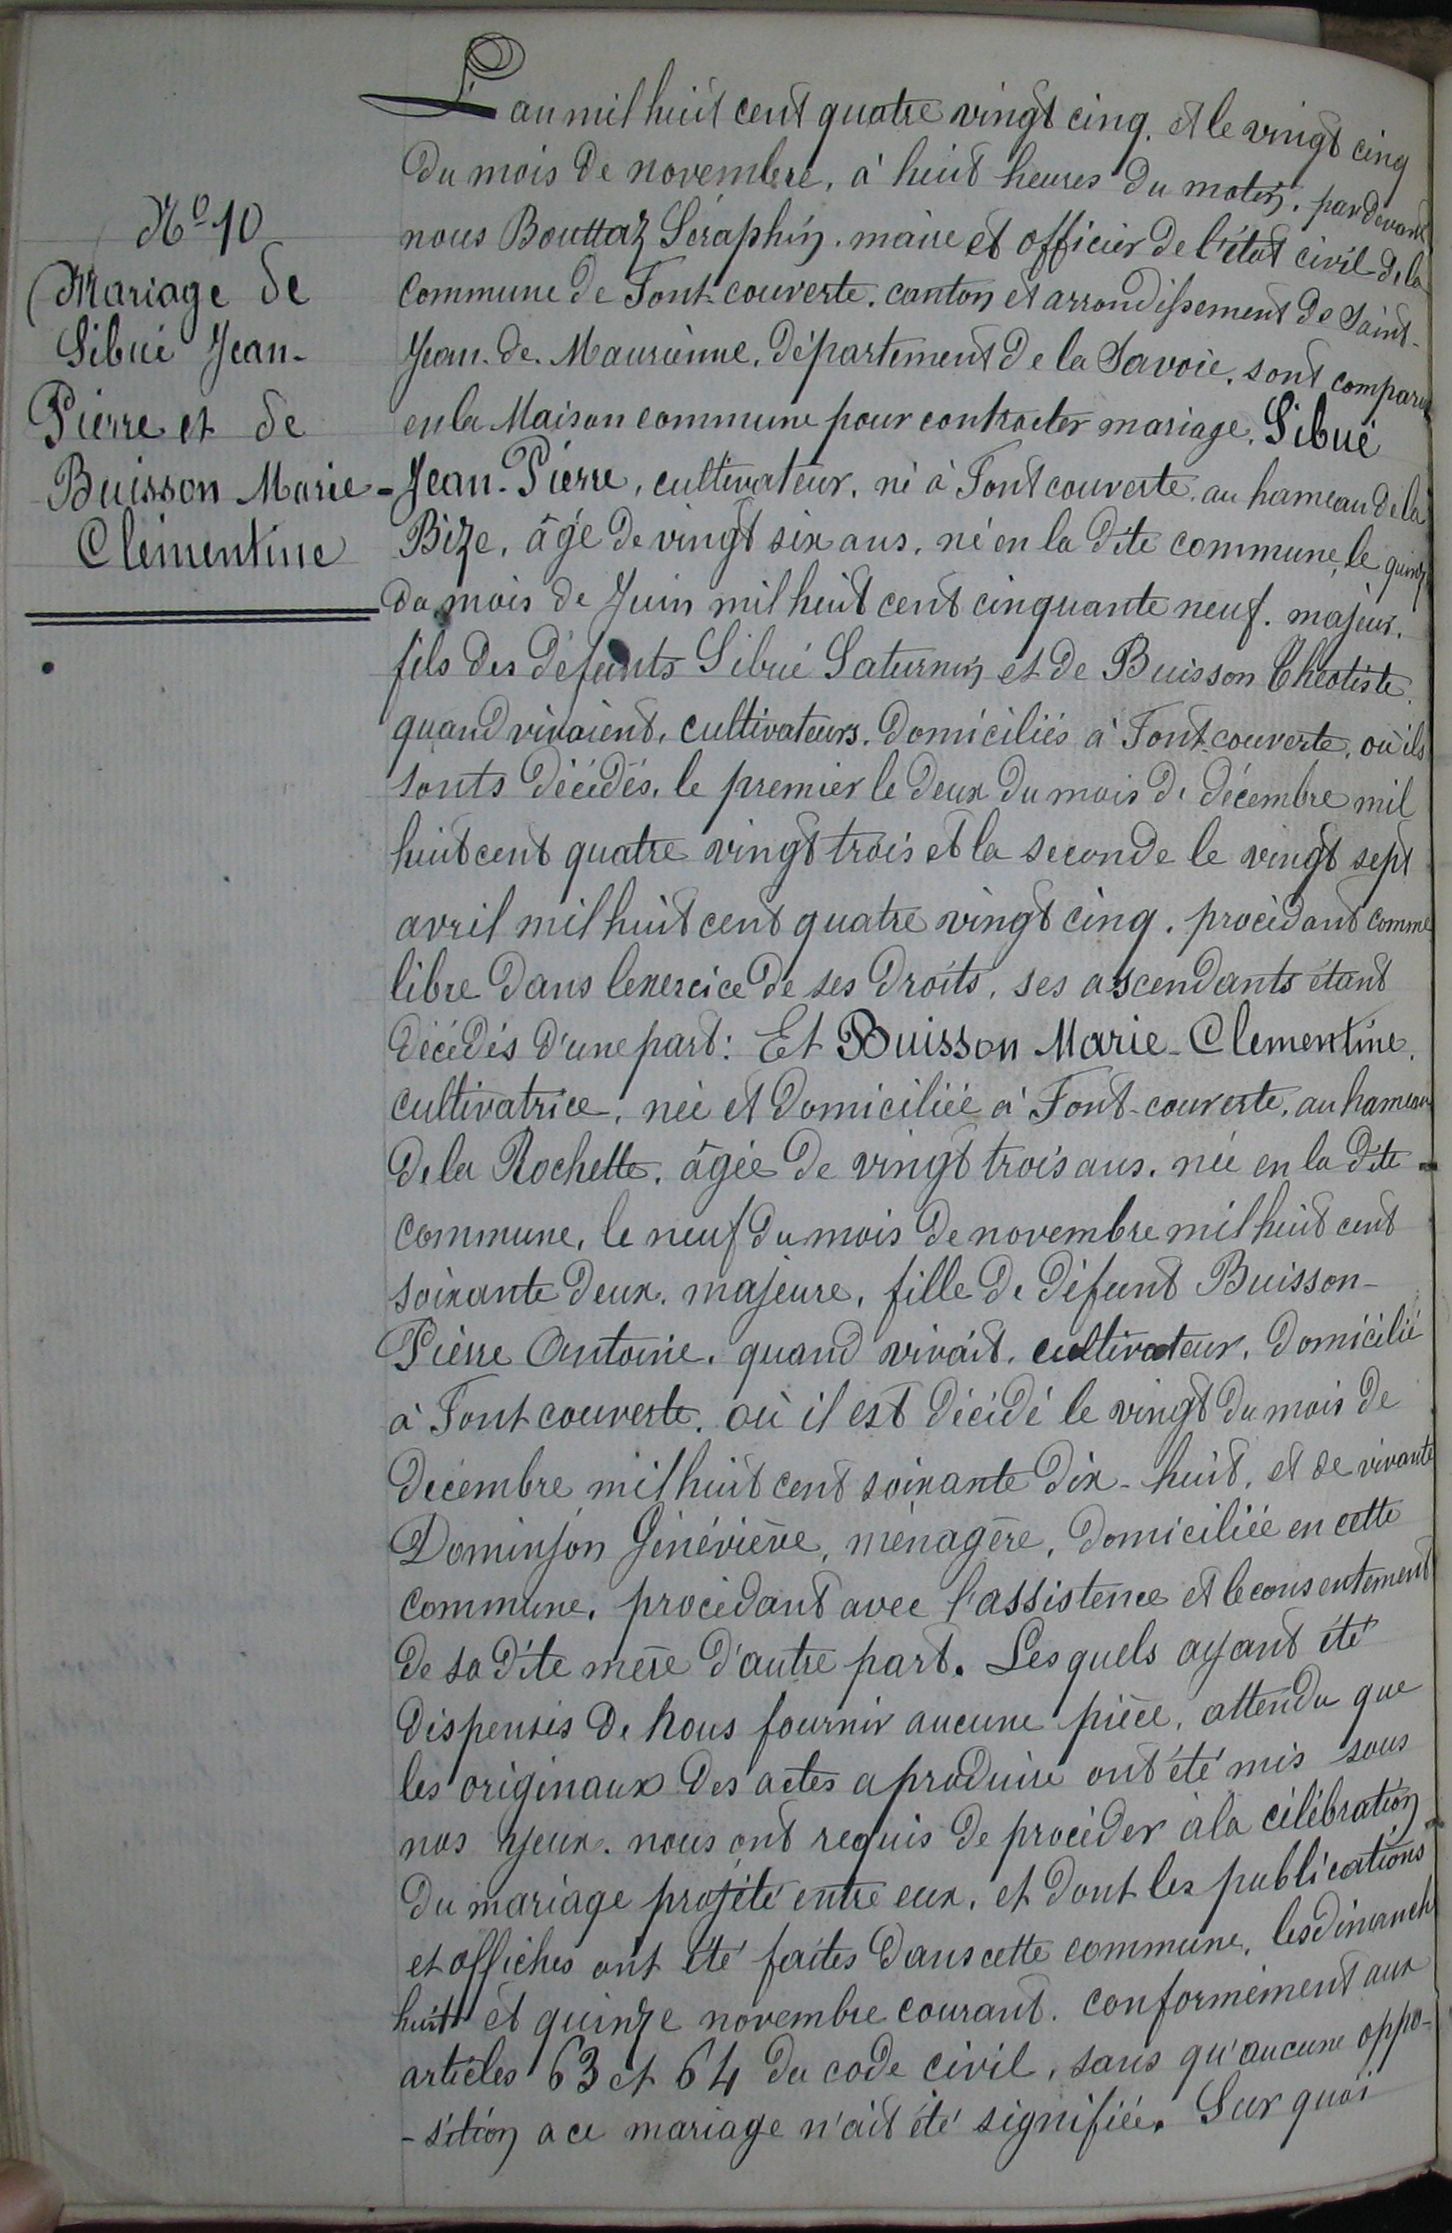 N° 10
Mariage de
Sibué Jean-
Pierre et de
Buisson Marie-
Clémentine
L'an mil huit cent quatre vingt cinq. et le vingt cinq
du mois de novembre, à huit heures du matin, pardevant
nous Bouttaz Séraphin, maire et officier de l'état civil de la
Commune de Font-couverte, canton et arrondissement de Saint-
Jean-de-Maurienne, département de la Savoie, sont comparus
en la Maison commune pour contracter mariage, Sibué
Jean-Pierre, cultivateur, né à Font couverte, au hameau de la
Bize, âgé de vingt six ans, né en la dite commune, le quinze
du mois de Juin mil huit cent cinquante neuf. majeur,
fils des défunts Sibué Saturnin et de Buisson Théotiste,
quand vivaient, cultivateurs, domiciliés à Font-couverte, où ils
sonts décédés, le premier le deux du mois de décembre mil
huit cent quatre vingt trois et la seconde le vingt sept
avril mil huit cent quatre vingt cinq, procédant comme
libre dans lexercice de ses droits, ses ascendants étant
décédés d'une part: Et Buisson Marie-Clementine,
cultivatrice, née et domiciliée à Font-couverte, au hameau
de la Rochette, âgée de vingt trois ans, née en la dite
commune, le neuf du mois de novembre mil huit cent
soixante deux, majeure, fille de défunt Buisson-
Pierre Antoine, quand vivait, cultivateur, domicilié
à Font couverte, où il est décédé le vingt du mois de
décembre mil huit cent soixante dix-huit, et de vivante
Dominjon Généviève, ménagère, domiciliée en cette
commune, procédant avec l'assistence et le consentement
de sa dite mère d'autre part. Lesquels ayant été
dispensés de nous fournir aucune pièce, attendu que
les originaux des actes a produire ont été mis sous
nos yeux, nous ont requis de procéder à la célébration
du mariage projété entre eux, et dont les publications
et affiches ont été faites dans cette commune, les dimanch
huit et quinze novembre courant. conformément aux
articles 63 et 64 du code civil, sans qu'aucune oppo-
-sition a ce mariage n'ait été signifiée. Sur quoi